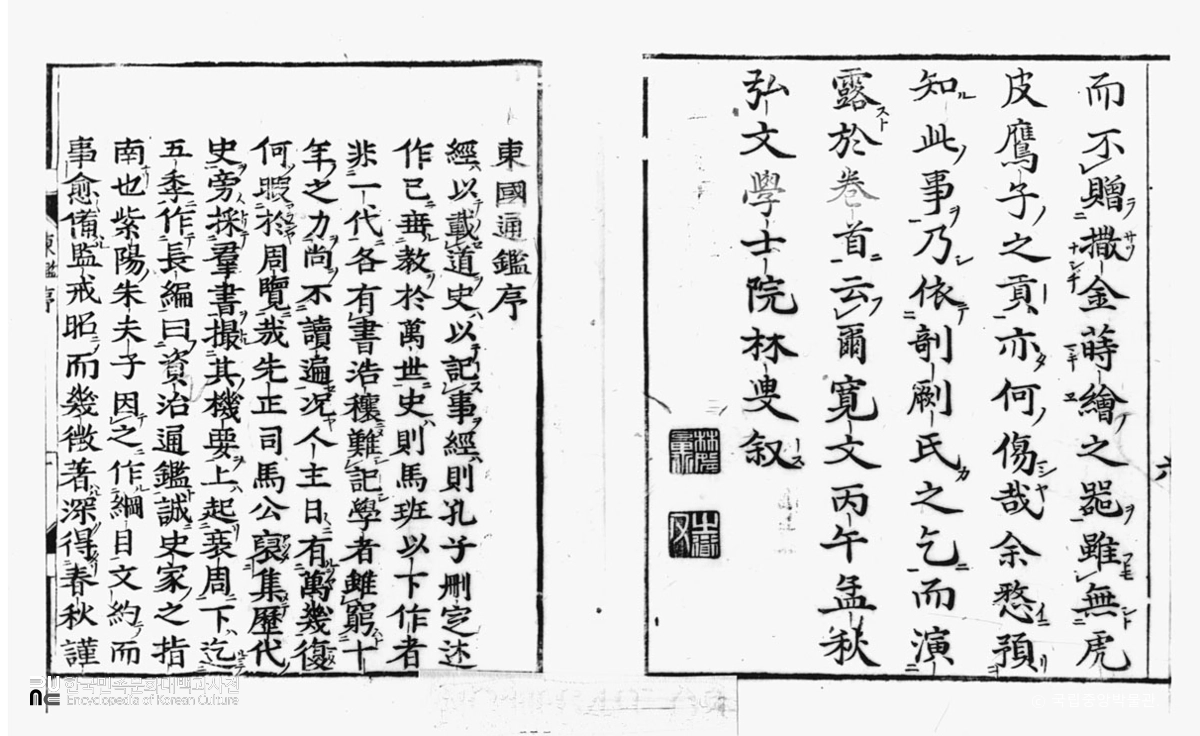 而不贈撒金蒔繪之器雖無虎
皮鷹子之貢亦何傷哉余愁預
知此事乃依剞劂氏之乞而演
露於卷首云爾寬文丙午孟秋
弘文學士院林叟叙
六
東國通鑑序
經以載道史以記事經則孔子刪定述
作已垂教於萬世史則馬班以下作者
非一代各有書浩穰難記學者雖窮十
年之力尚不讀遍况人主日有萬幾復
何暇於周覽哉先正司馬公裒集歷代
史旁採羣書撮其機要上起衰周下迄
五季作長編曰資治通鑑誠史家之指
南也紫陽朱夫子因之作綱目文約而
事愈備監戒昭而幾微著深得春秋謹
東鑑序
한국민족문화대백과사전
Encyclopedia of Korean Culture
국립중앙박물관